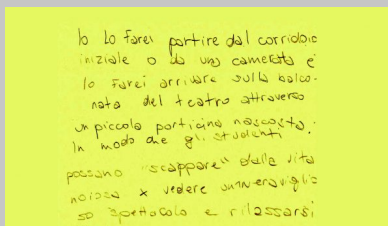 Io lo farei partire dal corridoio
iniziale o da una camerata e
lo farei arrivare sulla balco-
nata del teatro attraverso
un piccolo porticina nascosta.
In modo che gli studenti
possano "scappare" dalla vita
noiosa x vedere un meraviglio
so spettacolo e rilassarsi